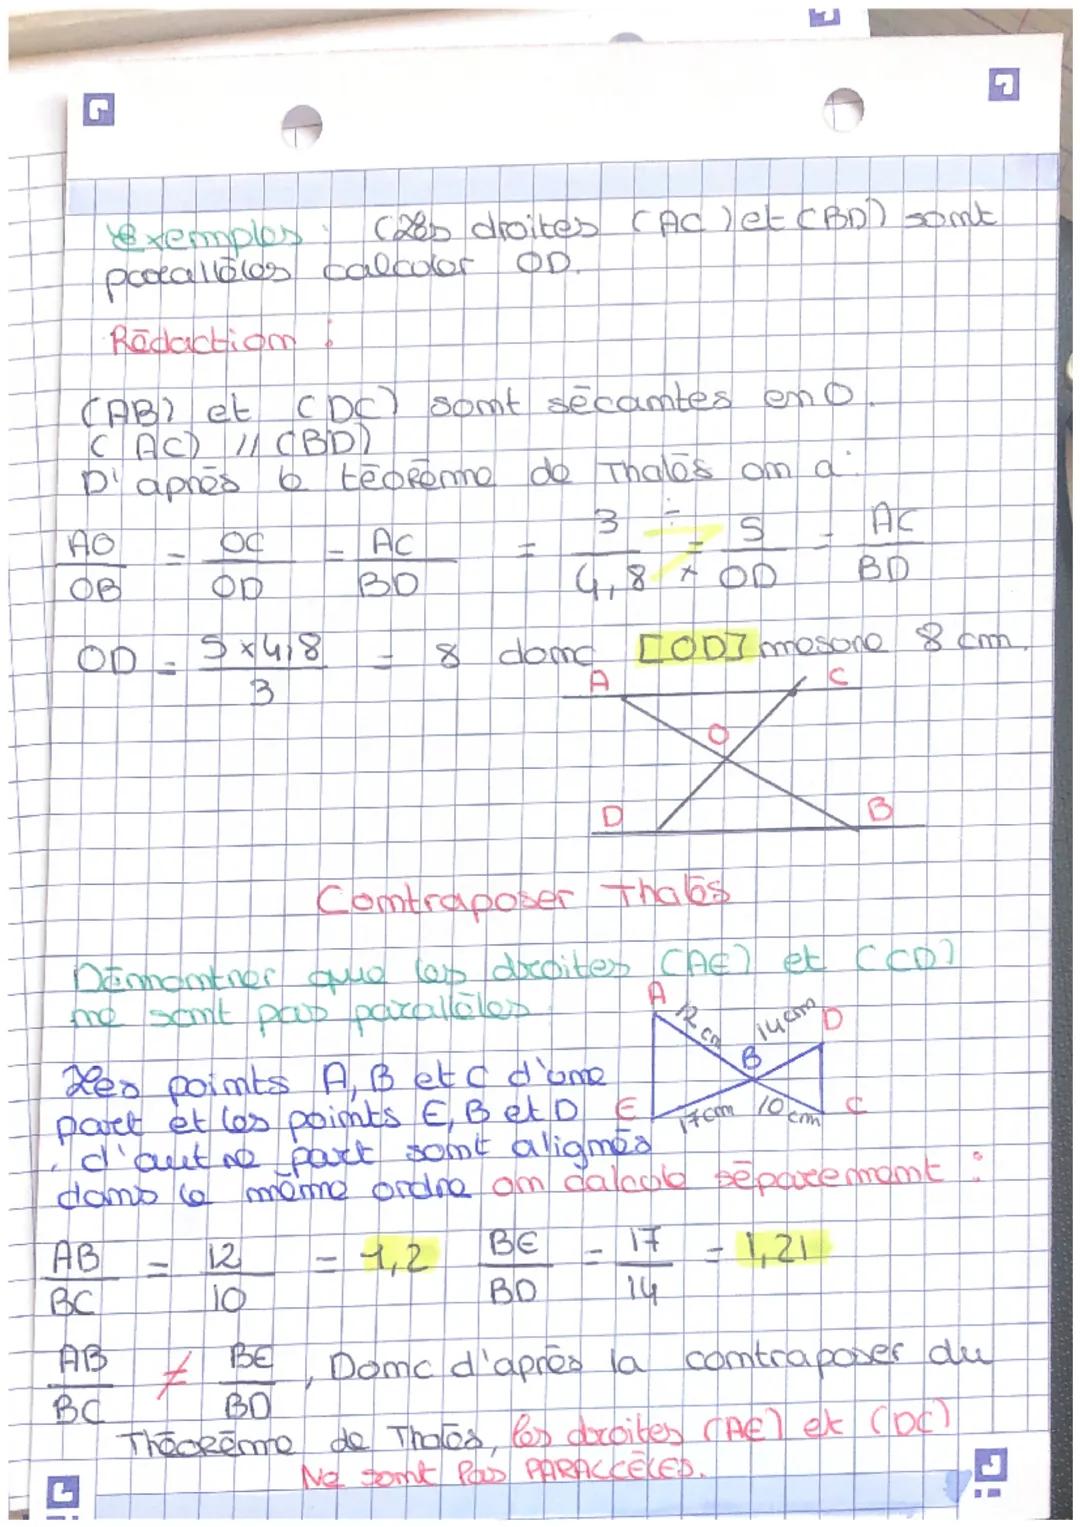 exemples : (Les droites (AC) et (BD) sont
parallèles calculer OD.
Rédaction :
(AB) et (DC) sont sécantes en O.
(AC) // (BD)
D'après le téorème de Thalès on a :
AO/OB = OC/OD = AC/BD = 3/4,8 = 5/OD = AC/BD
÷ ×
OD = 5×4,8/3 = 8 donc [OD] mesure 8 cm.
A C
O
D B
Contraposer Thalès
Démontrer que les droites (AE) et (CD)
ne sont pas parallèles
A 12 cm 14 cm D
B
E 17cm 10 cm C
Les points A, B et C d'une
part et les points E, B et D
, d'autre part sont alignés
dans le même ordre on calcule séparemment :
AB/BC = 12/10 = 1,2 BE/BD = 17/14 = 1,21
AB/BC ≠ BE/BD, Donc d'après la contraposer du
Théorème de Thalès, les droites (AE) et (DC)
Ne sont Pas PARALLÈLES.